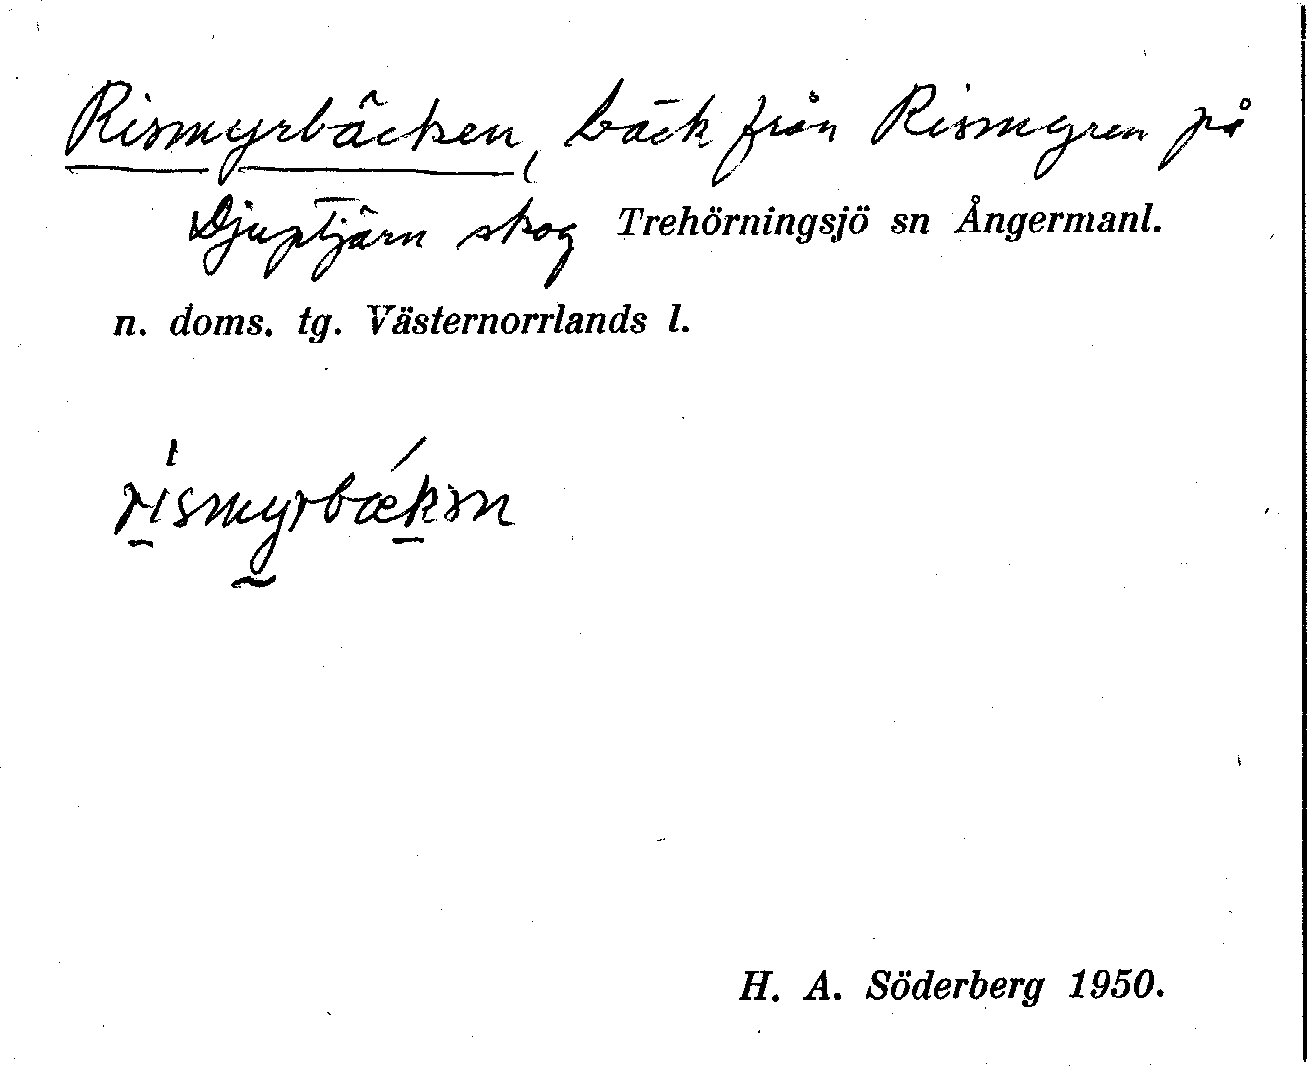 Rismyrbäcken, bäck från Rismyren på
Djuptjärn skog Trehörningsjö sn Ångermanl.
n. doms. tg. Västernorrlands l.
rismyrbækən
H. A. Söderberg 1950.